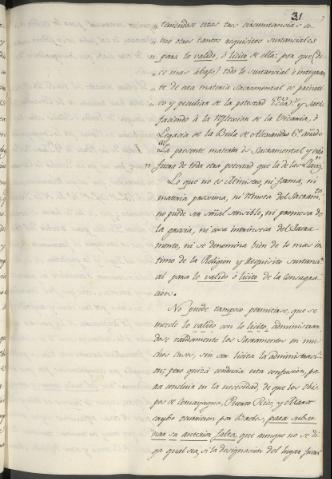 31
teniendas estas tas circunstancias co-
mo otros tantos requisitos sustanciales
para lo valido, ó licito de ella: por que (de
ce mas abajo) todo lo sustancial é integran
te de esa materia Sacramental es pacientes
y peculiar de la potestad
faciendo á la reflexion de la Vicaria, ó
Legacia de la Bula de Alexandro 6.º añade
La presente materia es Sacramental y está
fuera de toda otra potestad que la de las
Lo que no es Ministro, ni forma, ni
materia proxima, ni efecto del Sacram.to
no puede ser señal sensible, ni promesa de
la gracia, ni cosa intrinseca del Sacra-
mento, ni se denomina bien de lo mas in-
timo de la Religion y requisito sustanci-
al para lo valido ó licito de la consegra-
cion.
No puede tampoco permitirse, que se
mezcle lo valido con lo licito, administran-
dose validamente los Sacramentos en mu-
chos casos, sin ser licita la administraci-
on; pero quizá conduciria esta confusion, pa-
ra concluir en la necesidad, de que los Obis-
pos de Comayagua, Puerto Rico, y Mara-
caybo ocurriesen por Bulas, para subsa-
nar su anterior falta, que aunque no se di-
ga qual sea, si la designacion del lugar